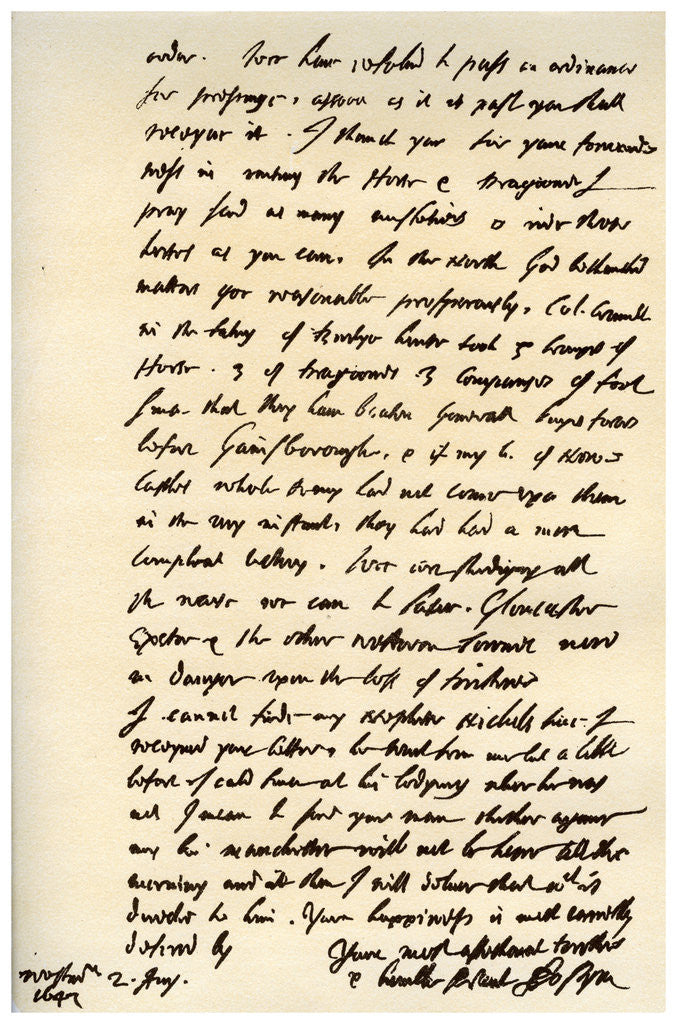 order. Wee have resolved to pass an ordinance
for pressinge, assoon as it is past you shall
receyve it. I thanck you for your forward-
ness in raising the Horse & dragoones I
pray send as many musketiers to ride those
horses as you can. In the North God be thancked
matters goe reasonable prosperously, Col. Cromwell
in the taking of house took 5 troupes of
Horse. 3 of dragoones 3 companyes of foot
since that they have beaten Generall Kings forces
before Gainsborough, & if my L. of New-
castles whole Army had not come upon them
in the very instant, they had had a more
compleat victory. Wee are studiynge all
the wayes we can to Glocester
Exeter & the other westerne Townes now
in danger upon the loss of Bristow
I cannot find my Nephew Nichols since I
receyved your letter, he went from me but a little
before I at his lodgings where he was
not I mean to send your man thether againe
my Lo: Manchester will not be here till the
morning and at then I will deliver that wch is
directed to him. Your happiness is most earnestly
desired by
Your most affectionat brother
& humble servant Jo Pym
Westmr 2. Aug.
1643